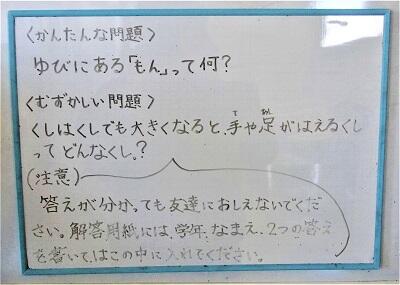 〈かんたんな問題〉
ゆびにある「もん」って何?
〈むずかしい問題〉
くしはくしでも大きくなると、手や足がはえるくし
てあし
ってどんなくし。?
(注意)
答えが分かっても友達におしえないでくだ
さい。解答用紙には、学年、なまえ、2つの答え
を書いて、はこの中に入れてください。